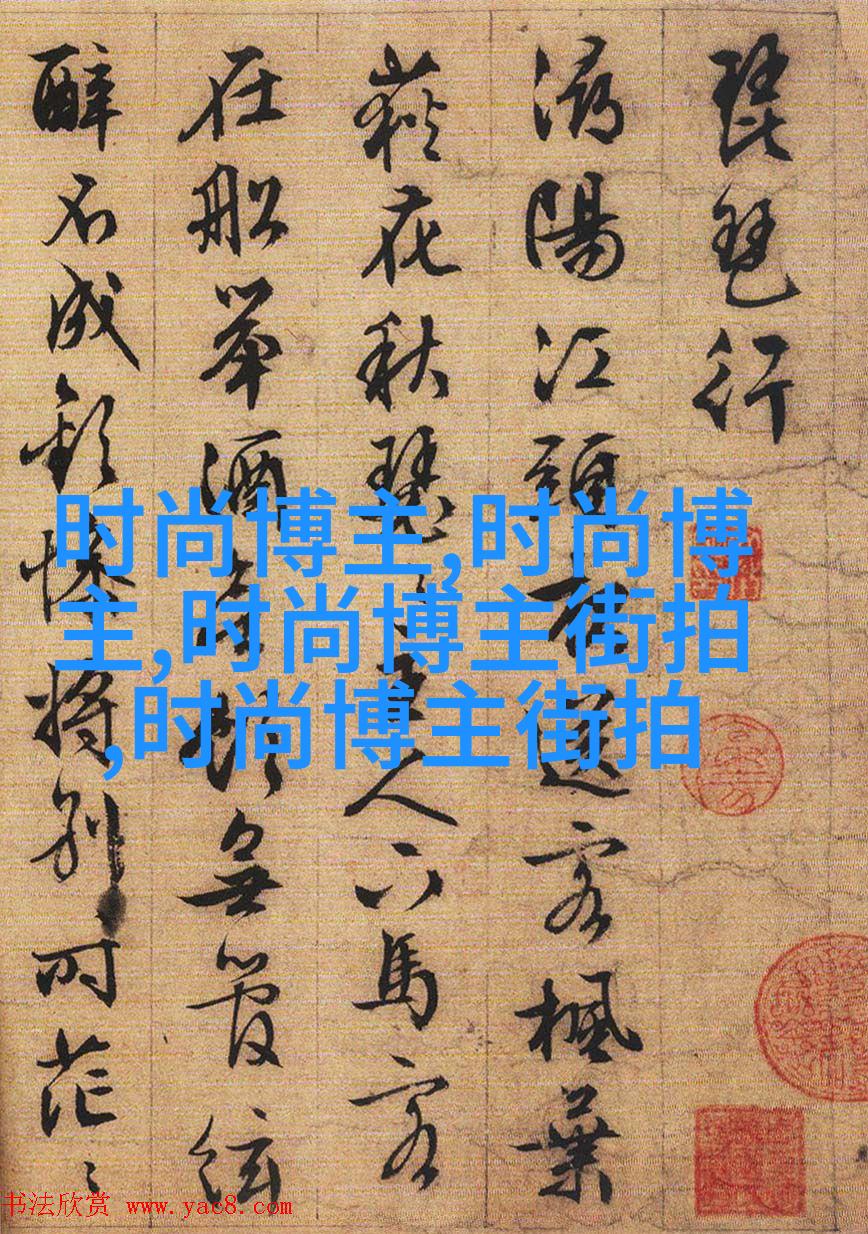 琵琶行
潯陽江頭夜送客楓葉
荻花秋瑟〻主人下馬客
在船舉酒欲飲無管絃
醉不成歡慘將別〻時茫〻
时尚博主,时尚博
主,时尚博主街拍
,时尚博主街拍
书法欣赏 www.yac8.com